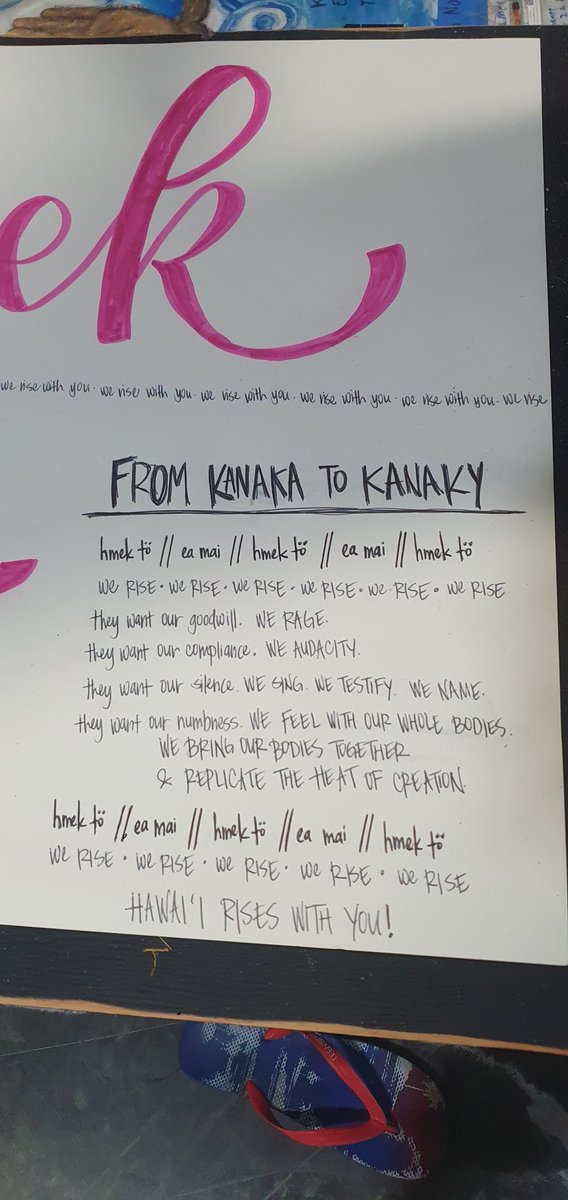 ek
we rise with you · we rise with you · we rise with you · we rise with you · we rise with you · we rise
FROM KANAKA TO KANAKY
hmek tö // ea mai // hmek tö // ea mai // hmek tö
we RISE · we RISE · we RISE · we RISE · we RISE · we RISE
they want our goodwill. WE RAGE.
they want our compliance. WE AUDACITY.
they want our silence. WE SING. WE TESTIFY. WE NAME.
they want our numbness. WE FEEL WITH OUR WHOLE BODIES.
WE BRING OUR BODIES TOGETHER
& REPLICATE THE HEAT OF CREATION.
hmek tö // ea mai // hmek tö // ea mai // hmek tö
we RISE · we RISE · we RISE · we RISE · we RISE
HAWAI'I RISES WITH YOU!